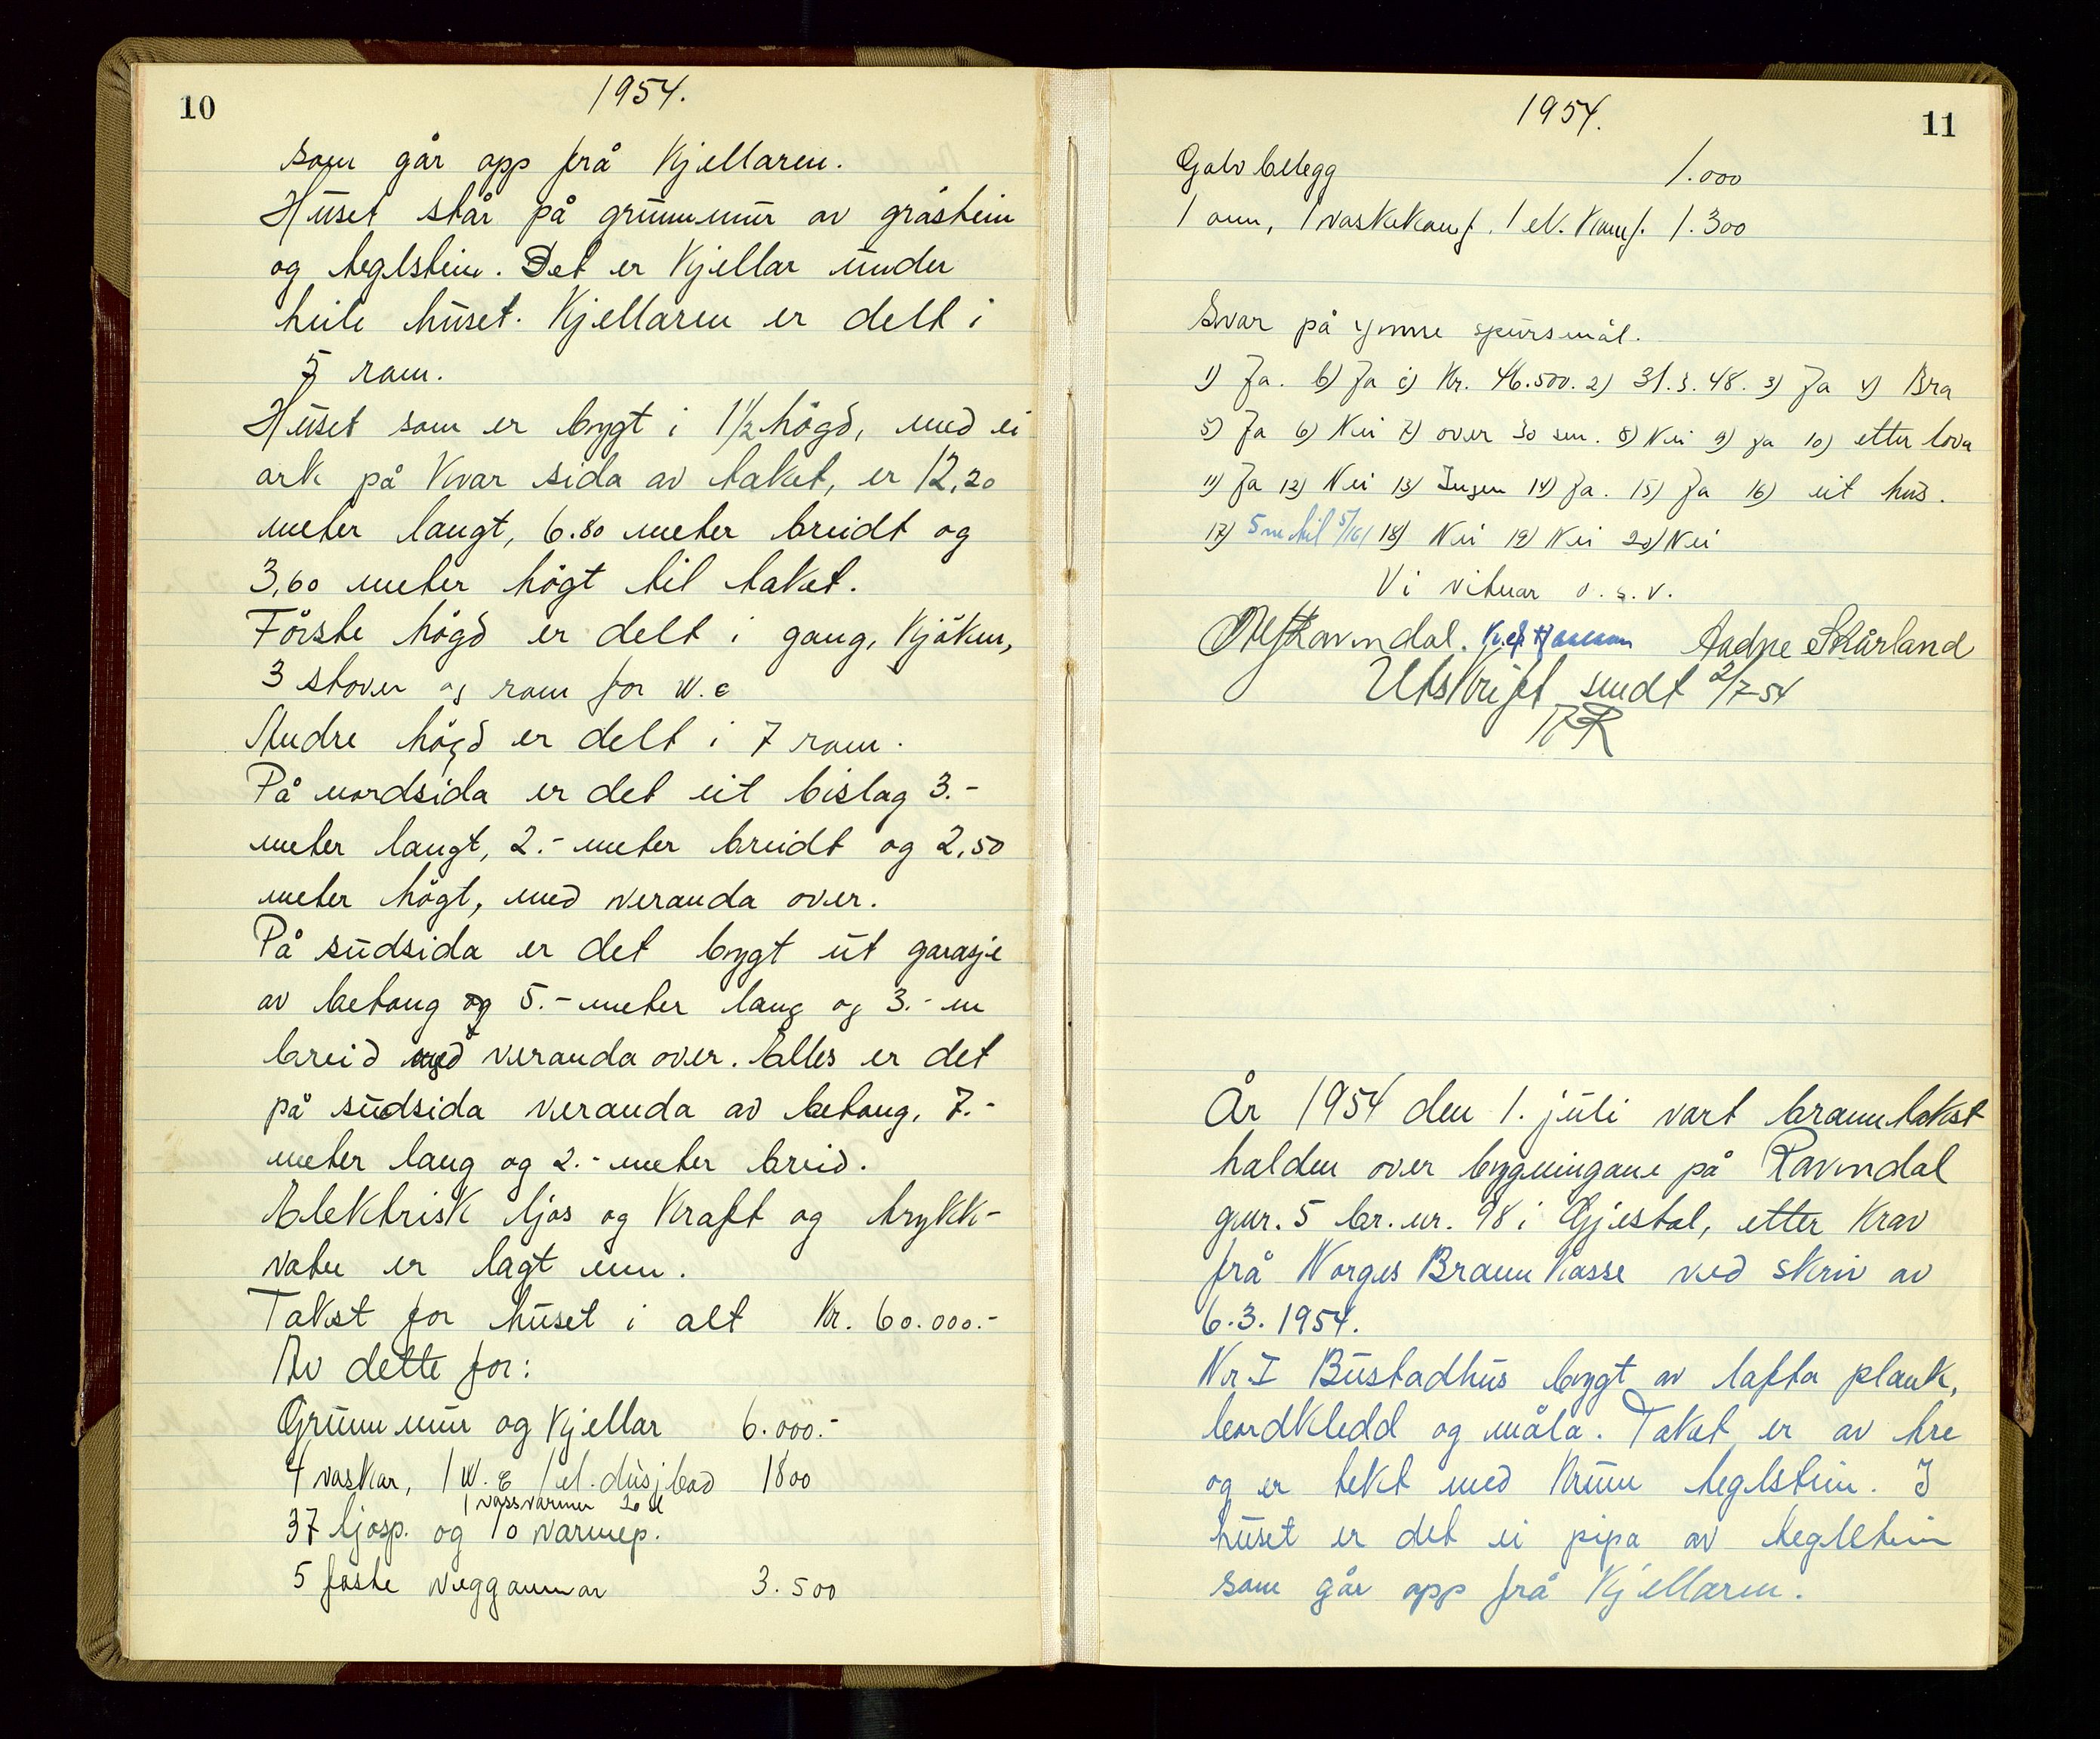 10
1954.
som går opp frå Kjellaren.
Huset står på grunnmur av gråstein
og teglstein. Det er Kjellar under
heile huset. Kjellaren er delt i
5 rom.
Huset som er bygt i 1 1/2 högd, med ei
ark på Kvar sida av taket, er 12,20
meter langt, 6.80 meter breidt og
3,60 meter högt til taket.
Förste högd er delt i gang, Kjöken,
3 stover og rom for W.C
Andre högd er delt i 7 rom.
På nordsida er det eit bislag 3.-
meter langt, 2.- meter breidt og 2,50
meter högt, med veranda over.
På sudsida er det bygt ut garasje
av betong og 5.- meter lang og 3.- m
breid med veranda over. Elles er det
på sudsida veranda av betong, 7.-
meter lang og 2.- meter breid.
Elektrisk ljos og Kraft og trykk-
vatn er lagt inn.
Takst for huset i alt Kr. 60.000.-
Av dette for:
Grunnmur og Kjellar 6.000.-
4 vaskar, 1 W.C 1 el. dusjbad 1800
1 vassvarmer 20 l
37 ljosp. og 10 varmep.
5 faste veggomnar 3.500
1954.
11
Golvbelegg 1.000
1 omn, 1 vaskekomf. 1 el. Komf. 1.300
Svar på ymse spursmål.
1) Ja. b) Ja c) Kr. 46.500. 2) 31.3.48. 3) Ja 4) Bra
5) Ja 6) Nei 7) over 30 sm. 8) Nei 9) Ja 10) etter lova
11) Ja 12) Nei 13) Ingen 14) Ja. 15) Ja 16) eit hus.
17) 5 m til 5/161 18) Nei 19) Nei 20) Nei
Vi vitnar o.s.v.
Ravndal. Aadne Skårland
Utskrift sendt 2/7-54
År 1954 den 1. juli vart branntakst
halden over bygningane på Ravndal
gnr. 5 br.nr. 98 i Gjestal, etter Krav
frå Norges BrannKasse ved skriv av
6.3.1954.
Nr. I Bustadhus bygt av lafta plank,
bordkledd og måla. Taket er av tre
og er tekt med Krum teglstein. I
huset er det ei pipa av teglstein
som går opp frå Kjellaren.